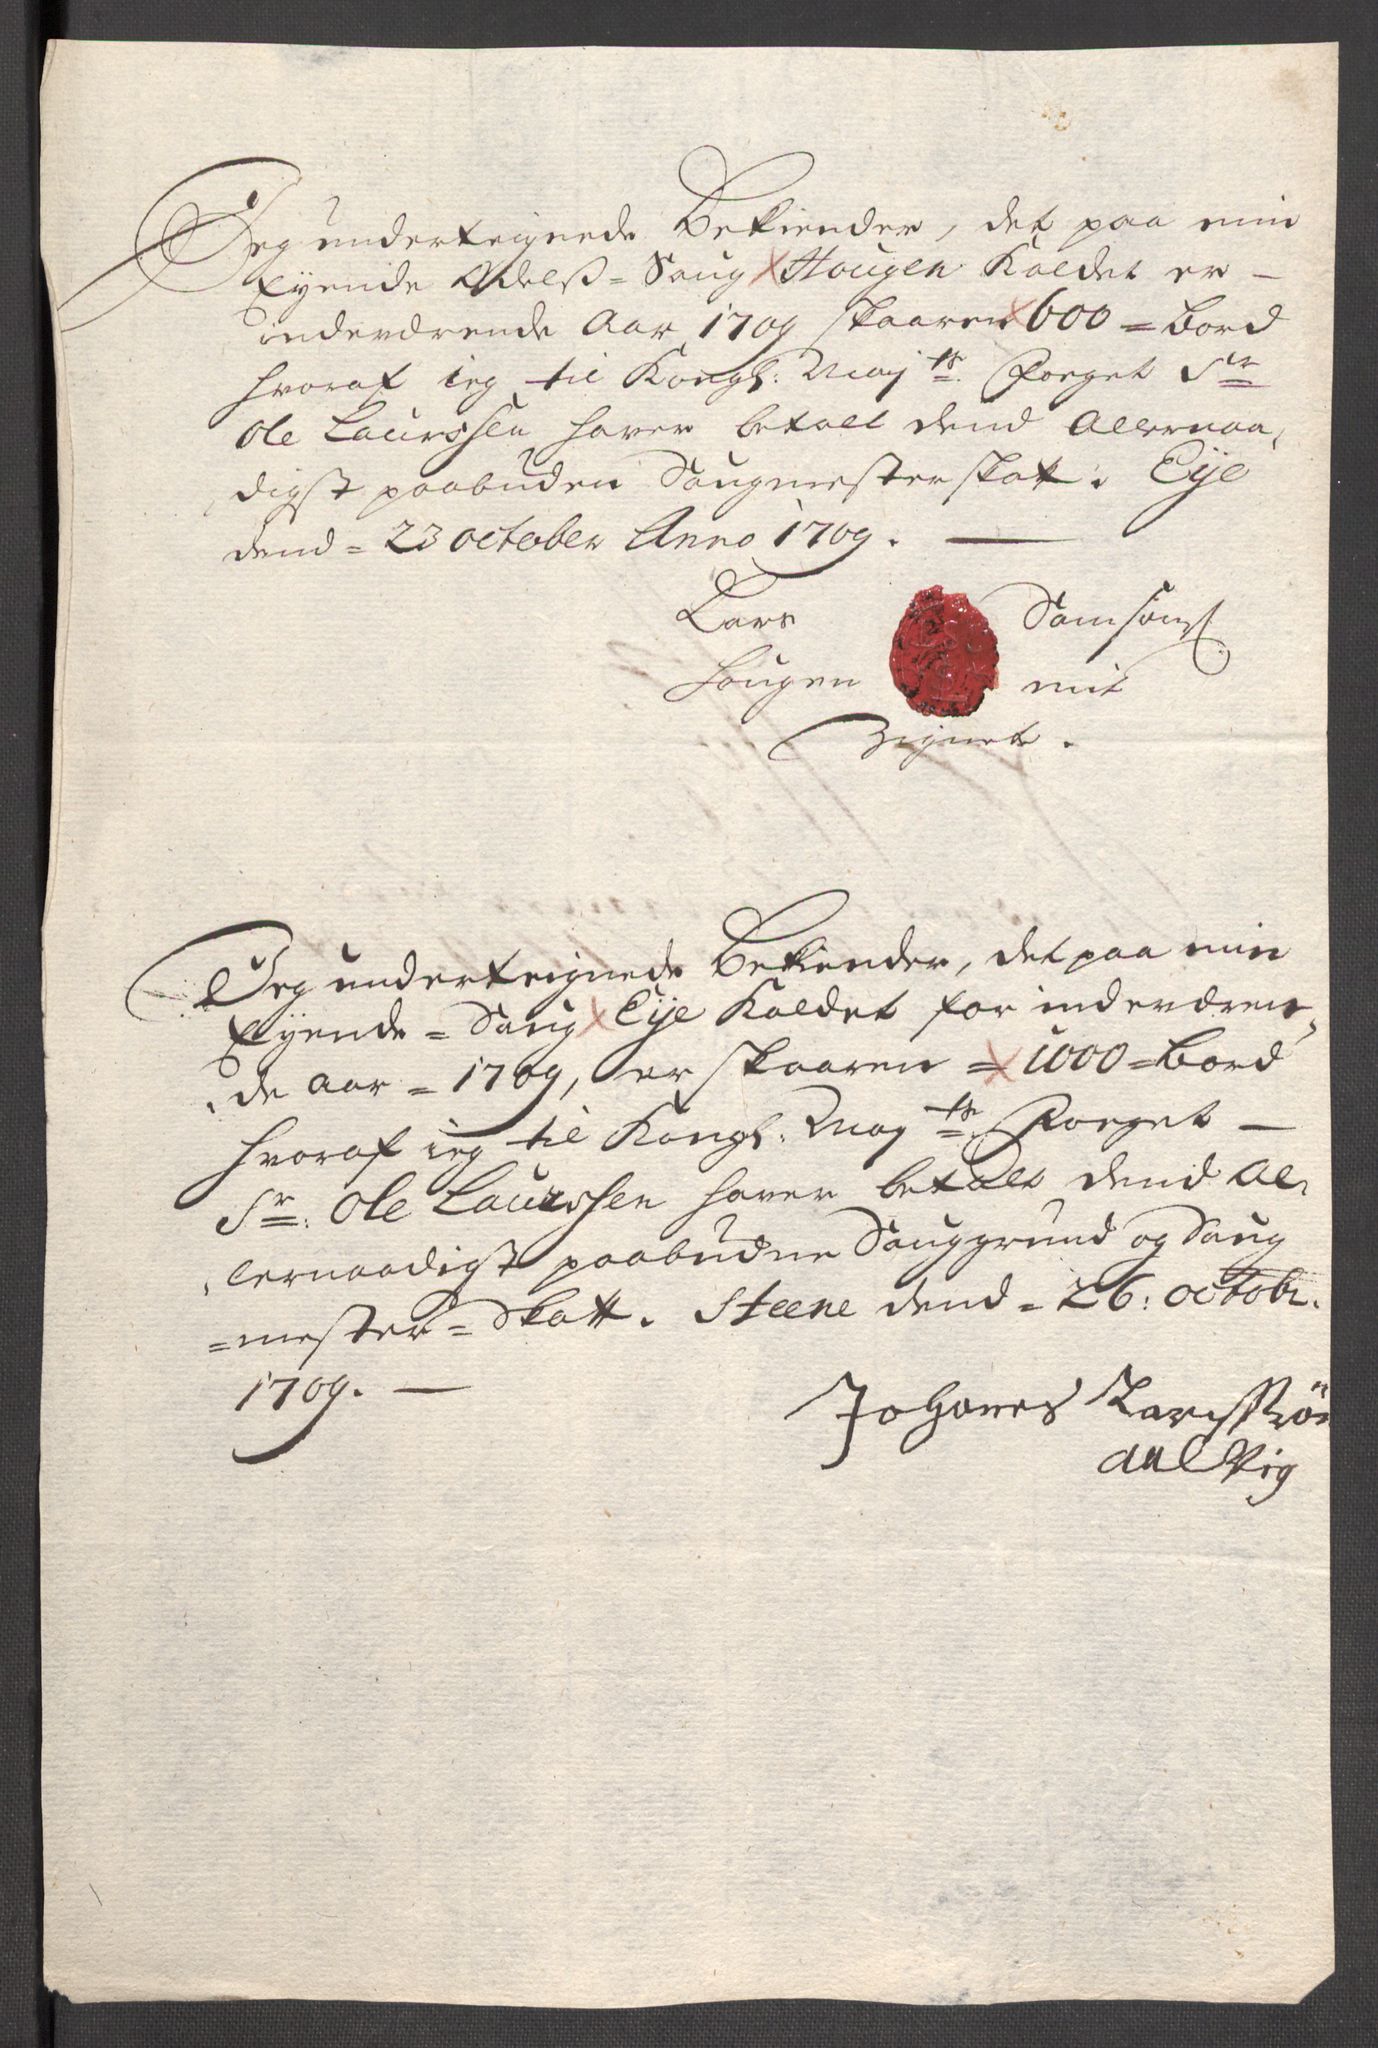 Jeg underteignede Bekiender, det paa min
Eyende Odelß = Saug Hougen Kaldet er –
indeværende Aar 1709 skaaren 600 = Bord
hvoraf ieg til Kongl: Mayts: Foeget Sr
Ole Laurssen haver betalt dend Allernaa,
digst paabuden Saugmester skatt. Eye
dend = 23 october Anno 1709. —
Lars Samsons:
Hougen mit
Zignete.
Jeg underteignede Bekiender, det paa min
Eyende = Saug Eye Kaldet for indeværen,
,de aar = 1709, er skaaren = 1000 = Bord
hvoraf ieg til Kongl: Mayts: Foeget –
Sr: Ole Laurssen haver betalt dend Al,
,lernaadigst paabudne Sauggrund og Saug
=mester = Skatt. Steene dend = 26: octobr.
1709. —
Johanes Larss
aalvig